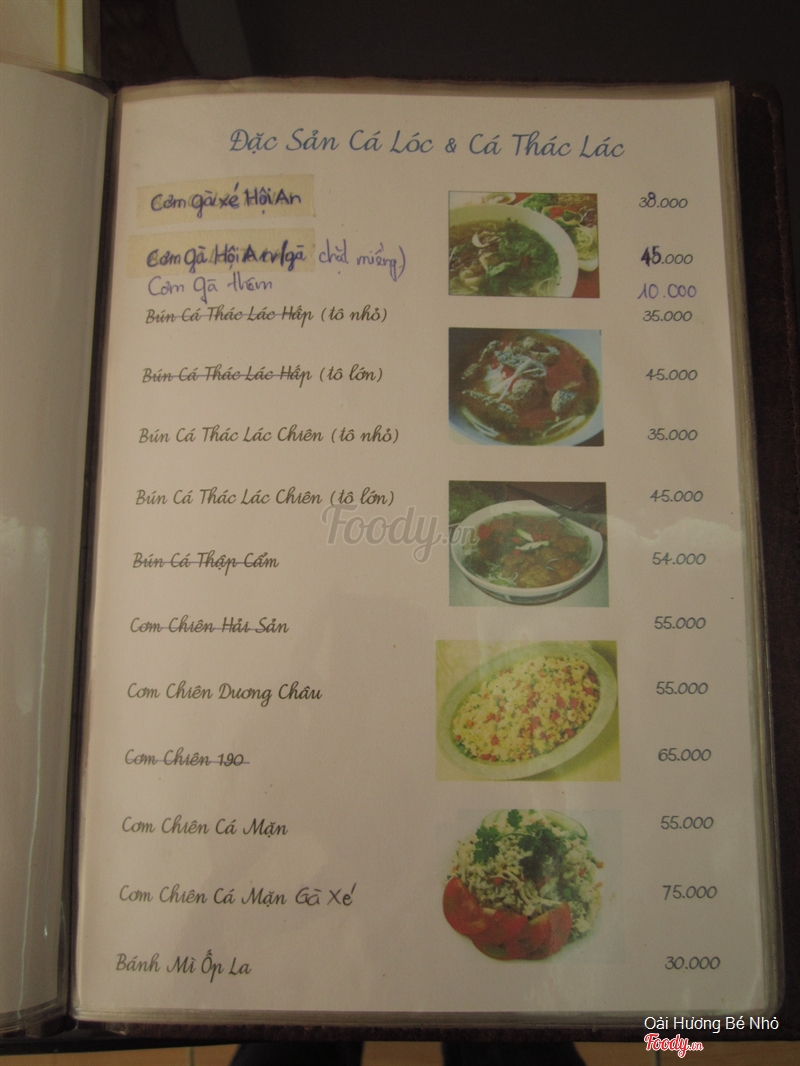 Đặc Sản Cá Lóc & Cá Thác Lác
Cơm gà xé Hội An 38.000
Cơm Gà Hội An/gà chặt miếng) 45.000
Cơm Gà thêm 10.000
Bún Cá Thác Lác Hấp (tô nhỏ) 35.000
Bún Cá Thác Lác Hấp (tô lớn) 45.000
Bún Cá Thác Lác Chiên (tô nhỏ) 35.000
Bún Cá Thác Lác Chiên (tô lớn) 45.000
Foody.vn
Bún Cá Thập Cẩm 54.000
Cơm Chiên Hải Sản 55.000
Cơm Chiên Dương Châu 55.000
Cơm Chiên 190 65.000
Cơm Chiên Cá Mặn 55.000
Cơm Chiên Cá Mặn Gà Xé 75.000
Bánh Mì Ốp La 30.000
Oải Hương Bé Nhỏ
Foody.vn